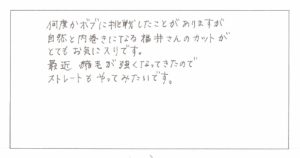 何度かボブに挑戦したことがありますが
自然と内巻きになる福井さんのカットが
とてもお気に入りです。
最近 縮毛が強くなってきたので
ストレートもやってみたいです。